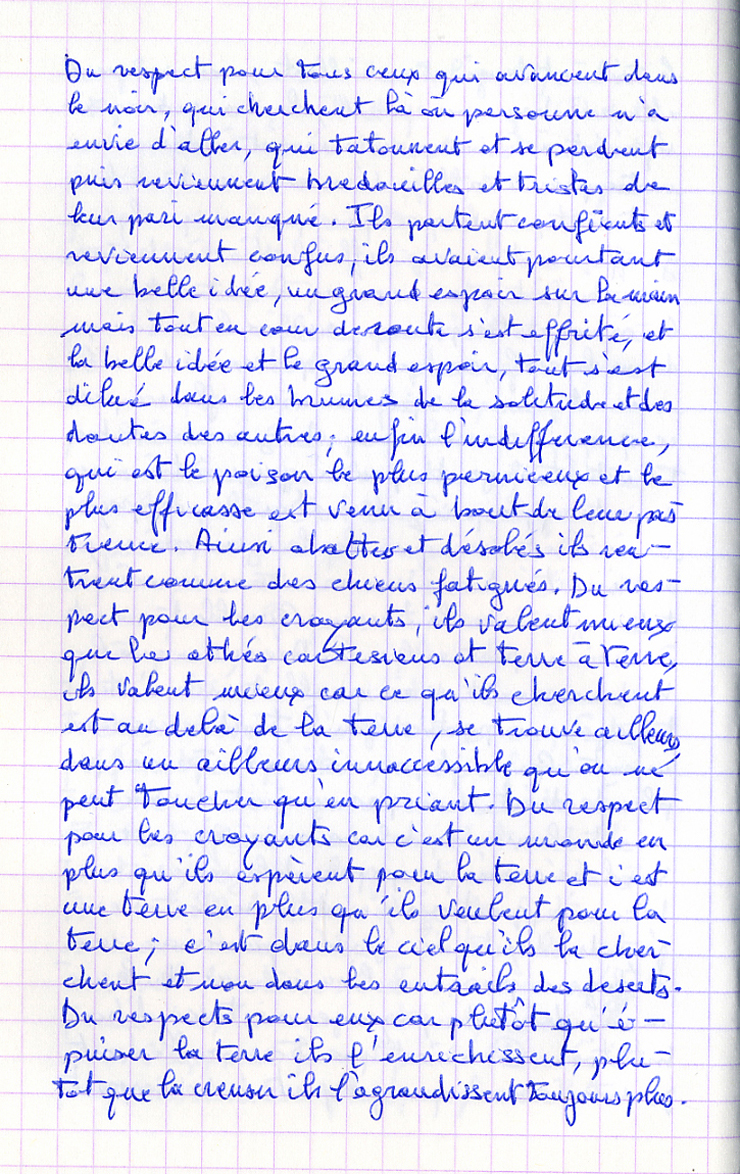 Du respect pour tous ceux qui avancent dans
le noir, qui cherchent là où personne n'a
envie d'aller, qui tatonnent et se perdent
puis reviennent bredouilles et tristes de
leur pari manqué. Ils partent confients et
reviennent confus, ils avaient pourtant
une belle idée, un grand espoir sur la main
mais tout en cour de route s'est effrité, et
la belle idée et le grand espoir, tout s'est
dilué dans les brumes de la solitude et des
doutes des autres; enfin l'indifference,
qui est le poison le plus pernicieux et le
plus efficasse est venu à bout de leur pas
tience. Ainsi abattus et désolés ils ren-
trent comme des chiens fatigués. Du res-
pect pour les croyants, ils valent mieux
que les athés cartesiens et terre à terre,
ils valent mieux car ce qu'ils cherchent
est au delà de la terre, se trouve ailleurs,
dans un ailleurs innaccessible qu'on ne
peut toucher qu'en priant. Du respect
pour les croyants car c'est un monde en
plus qu'ils espèrent pour la terre et c'est
une terre en plus qu'ils veulent pour la
terre; c'est dans le ciel qu'ils la cher
chent et non dans les entrails des deserts.
Du respects pour eux car plutôt qu'é-
puiser la terre ils l'enrichissent, plu-
tot que la creuser ils l'agrandissent toujours plus.